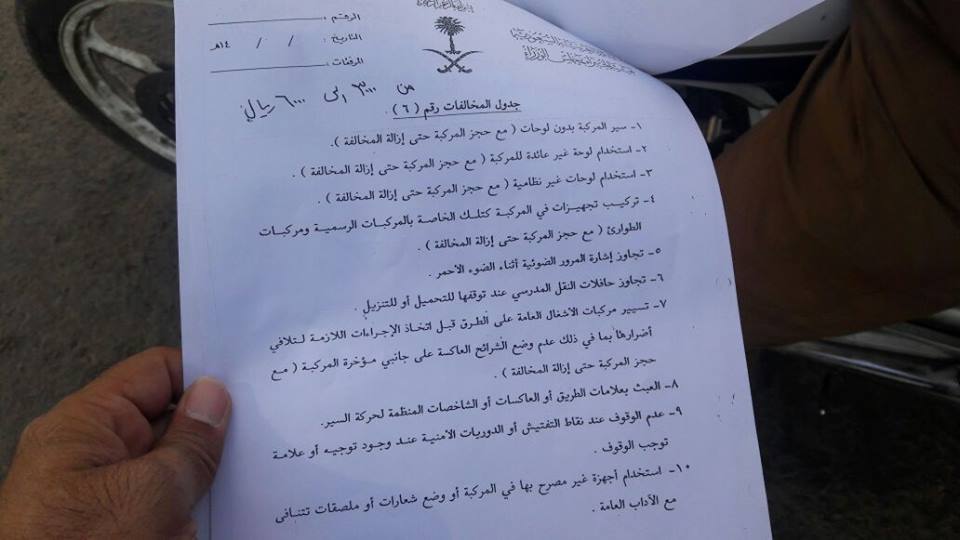 الرقم :
التاريخ : / / ١٤هـ
المرفقات :
من ٣٠٠٠ الى ٦٠٠٠ ريال
جدول المخالفات رقم ( ٦ ) .
١- سير المركبة بدون لوحات ( مع حجز المركبة حتى إزالة المخالفة ).
٢- استخدام لوحة غير عائدة للمركبة ( مع حجز المركبة حتى إزالة المخالفة ) .
٣- استخدام لوحات غير نظامية ( مع حجز المركبة حتى إزالة المخالفة ) .
٤- تركيب تجهيزات في المركبة كتلك الخاصة بالمركبات الرسمية ومركبات
الطوارئ ( مع حجز المركبة حتى إزالة المخالفة ) .
٥- تجاوز إشارة المرور الضوئية أثناء الضوء الأحمر .
٦- تجاوز حافلات النقل المدرسي عند توقفها للتحميل أو للتنزيل .
٧- تسيير مركبات الأشغال العامة على الطرق قبل اتخاذ الإجراءات اللازمة لتلافي
أضرارها بما في ذلك عدم وضع الشرائح العاكسة على جانبي مؤخرة المركبة ( مع
حجز المركبة حتى إزالة المخالفة ) .
٨- العبث بعلامات الطريق أو العاكسات أو الشاخصات المنظمة لحركة السير.
٩- عدم الوقوف عند نقاط التفتيش أو الدوريات الأمنية عند وجود توجيه أو علامة
توجب الوقوف .
١٠- استخدام أجهزة غير مصرح بها في المركبة أو وضع شعارات أو ملصقات تتنافى
مع الآداب العامة .